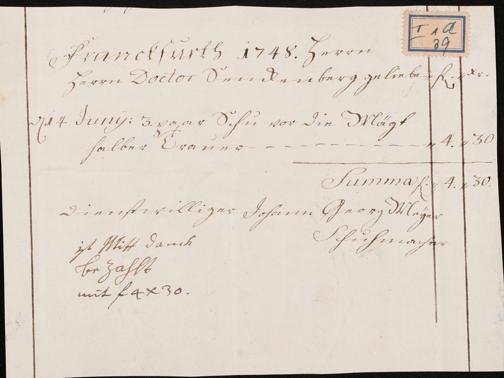 I 1 d
39
Franckfurth 1748. Herrn
Herrn Doctor Senckenberg geliebe f. xr.
d 14 Juny: 3 paar Schu vor die Mägt
halber Trauer 4. 30
Summa f. 4. 30.
dienstwilliger Johann Georg Meyer
Schuhmacher
ist Mitt danck
bezahlt
mit f 4 X 30.